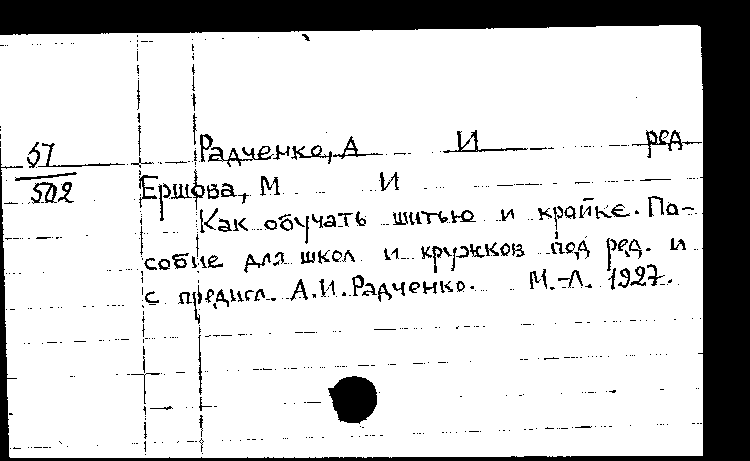 57 Радченко, А И ред.
502 Ершова, М И
Как обучать шитью и кройке. По-
собие для школ и кружков под ред. и
с предисл. А.И.Радченко. М.-Л. 1927.